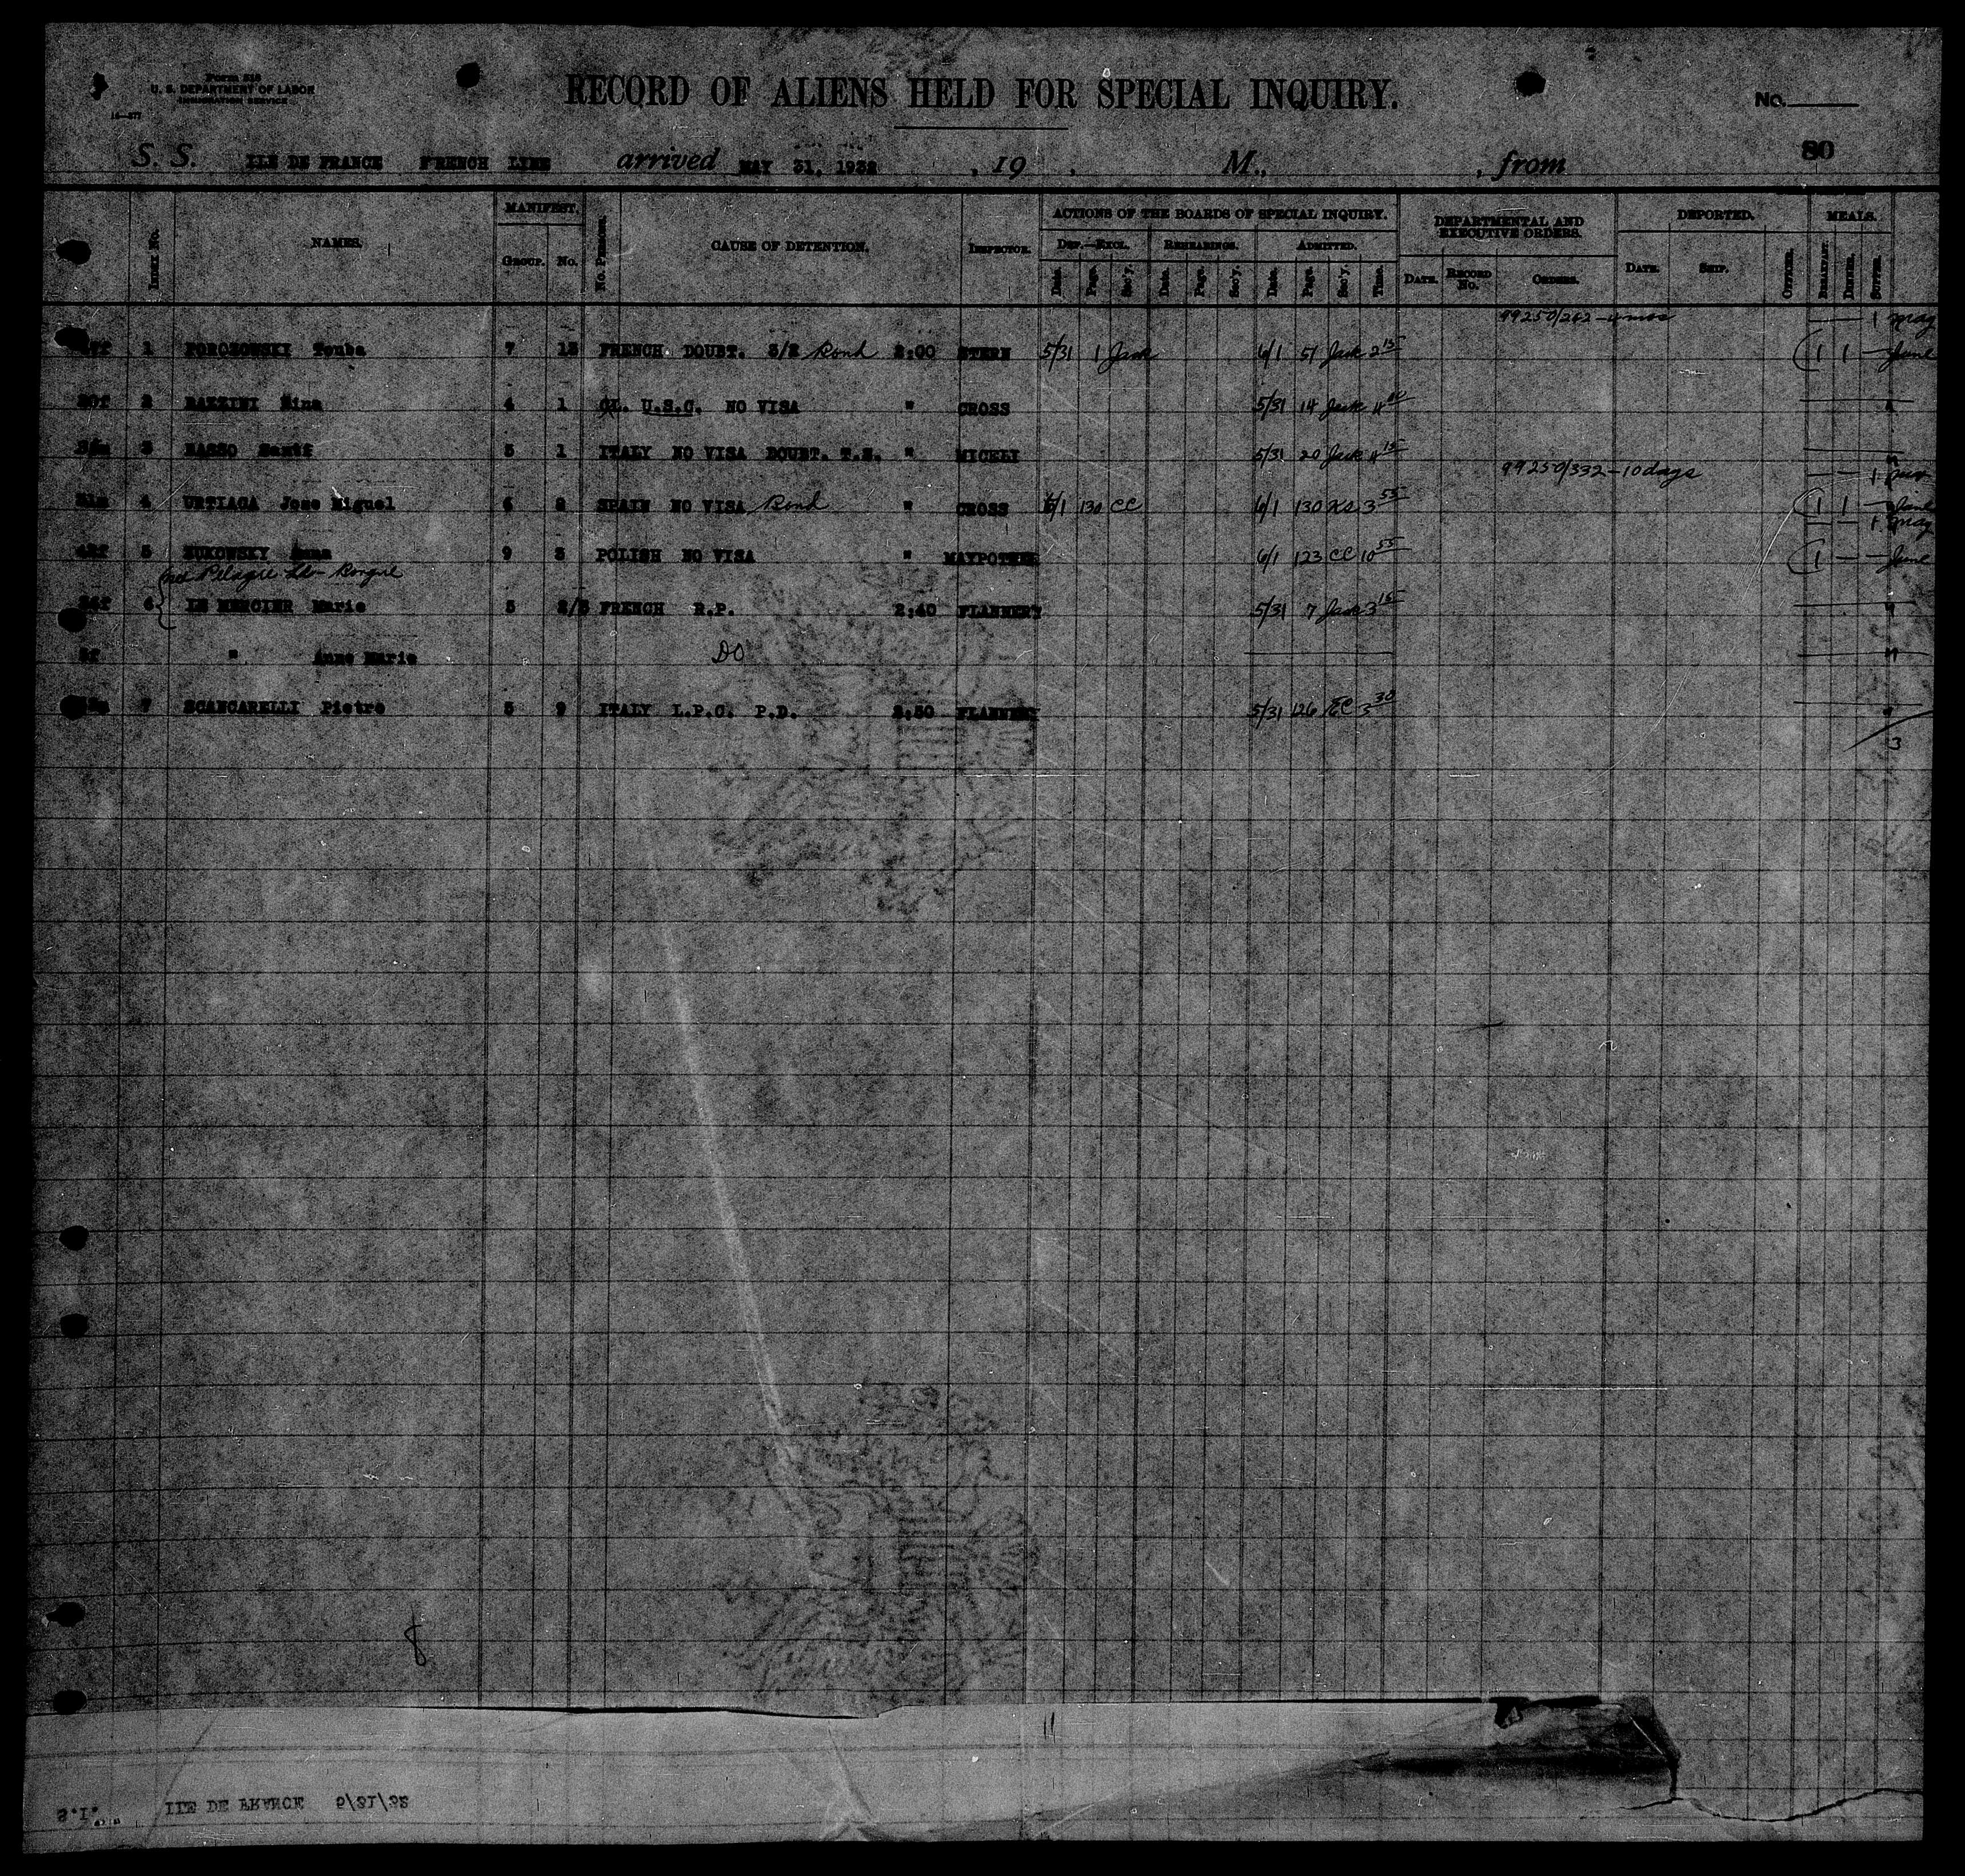 Form 218
U. S. DEPARTMENT OF LABOR
IMMIGRATION SERVICE
RECORD OF ALIENS HELD FOR SPECIAL INQUIRY.
No.
S. S. ILE DE FRANCE FRENCH LINE arrived MAY 31, 1932, 19 , M., , from
80
INDEX No. NAMES. MANIFEST. GROUP. No. No. PERSONS. CAUSE OF DETENTION. INSPECTOR. ACTIONS OF THE BOARDS OF SPECIAL INQUIRY. DEPARTMENTAL AND EXECUTIVE ORDERS. DEPORTED. MEALS.
DEF.—EXCL. REHEARINGS. ADMITTED.
Date. Page. Sec'y. Date. Page. Sec'y. Date. Page. Sec'y. Time. DATE. RECORD No. ORDERS. DATE. SHIP. OFFICER. BREAKFAST. DINNER. SUPPER.
99250/262 — 1 May
1 PORCZOWSKI 7 13 FRENCH DOUBT. Bond 2:00 STERN 5/31 1 Jack 6/1 51 Jack 2 15 1 1 — June
2 4 1 U.S.C. NO VISA " CROSS 5/31 14 Jack 4
3 5 1 ITALY NO VISA DOUBT. " MICELI 5/31 20 Jack 4 15
99250/332 — 10 days 1
4 URTIAGA Jose Miguel 6 2 SPAIN NO VISA Bond " CROSS 6/1 130 CC 6/1 130 3 55 1 1 — June
1 May
5 ZUKOWSKY Anna 9 3 POLISH NO VISA " 6/1 123 CC 10 55 1 — — June
6 LE MERCIER Marie 5 2/3 FRENCH R.P. 2:40 FLANNERY 5/31 7 Jack 3 15 "
" Anne Marie DO "
7 SCANCARELLI Pietro 5 9 ITALY L.P.C. P.D. 2:50 FLANNERY 5/31 126 EC 3 30 "
3
8
11
S.I. ILE DE FRANCE 5/31/32